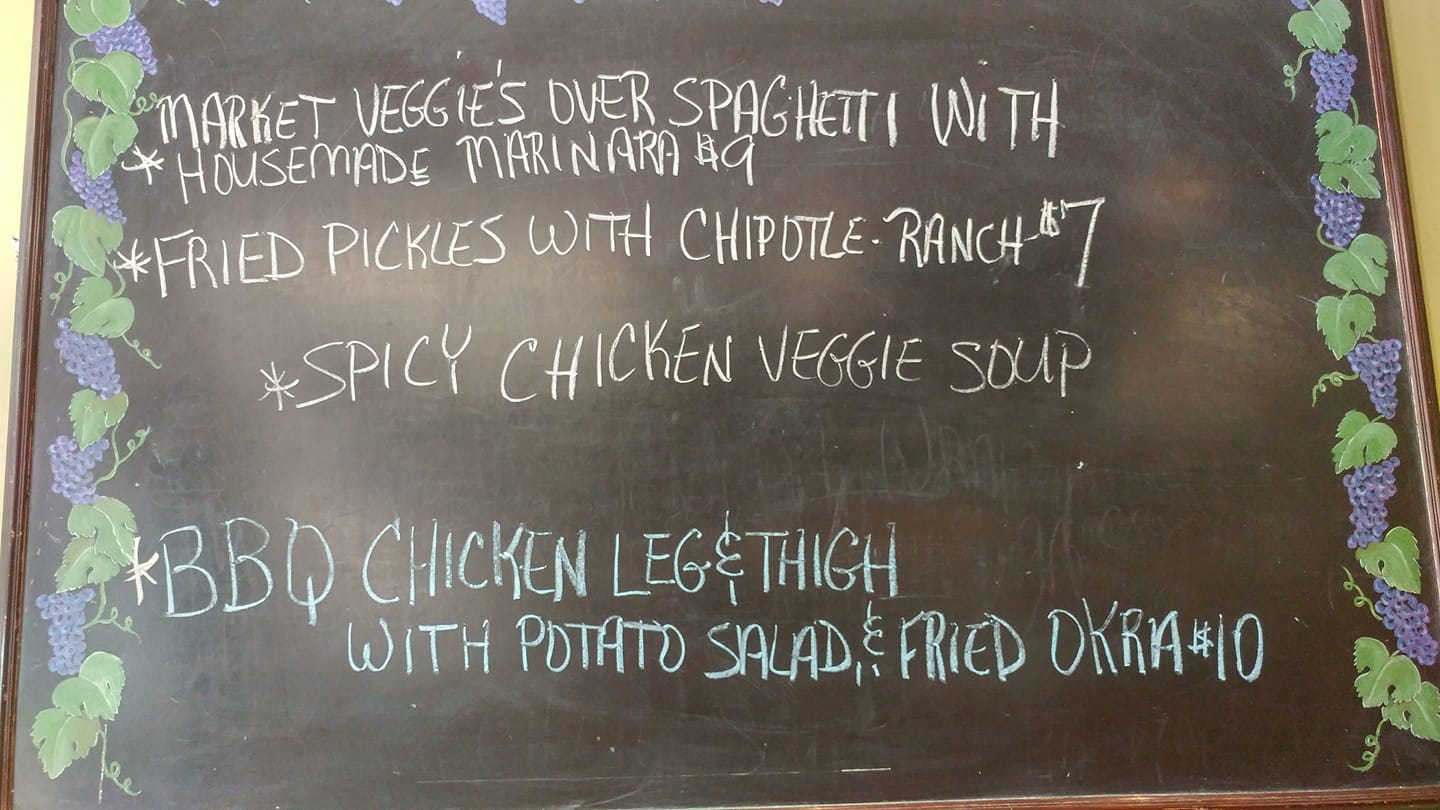 MARKET VEGGIE'S OVER SPAGHETTI WITH
* HOUSEMADE MARINARA $9
*FRIED PICKLES WITH CHIPOTLE-RANCH $7
*SPICY CHICKEN VEGGIE SOUP
*BBQ CHICKEN LEG & THIGH
WITH POTATO SALAD, & FRIED OKRA $10